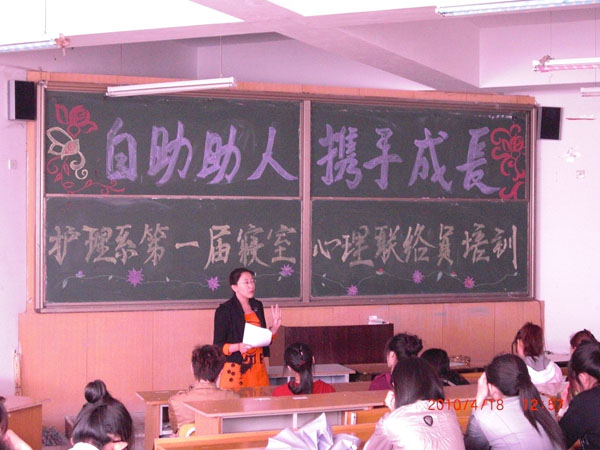 自助助人 携手成長
护理系第一届寝室 心理联络員培训
2010/4/18 12:51